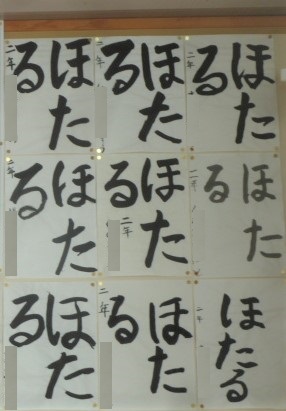 ほた
る
二年
ほた
る
二年
ほた
る
二年
ほた
る
年
ほた
る
二年
ほた
る
二年
ほた
る
ほた
る
二年
ほたる
二年